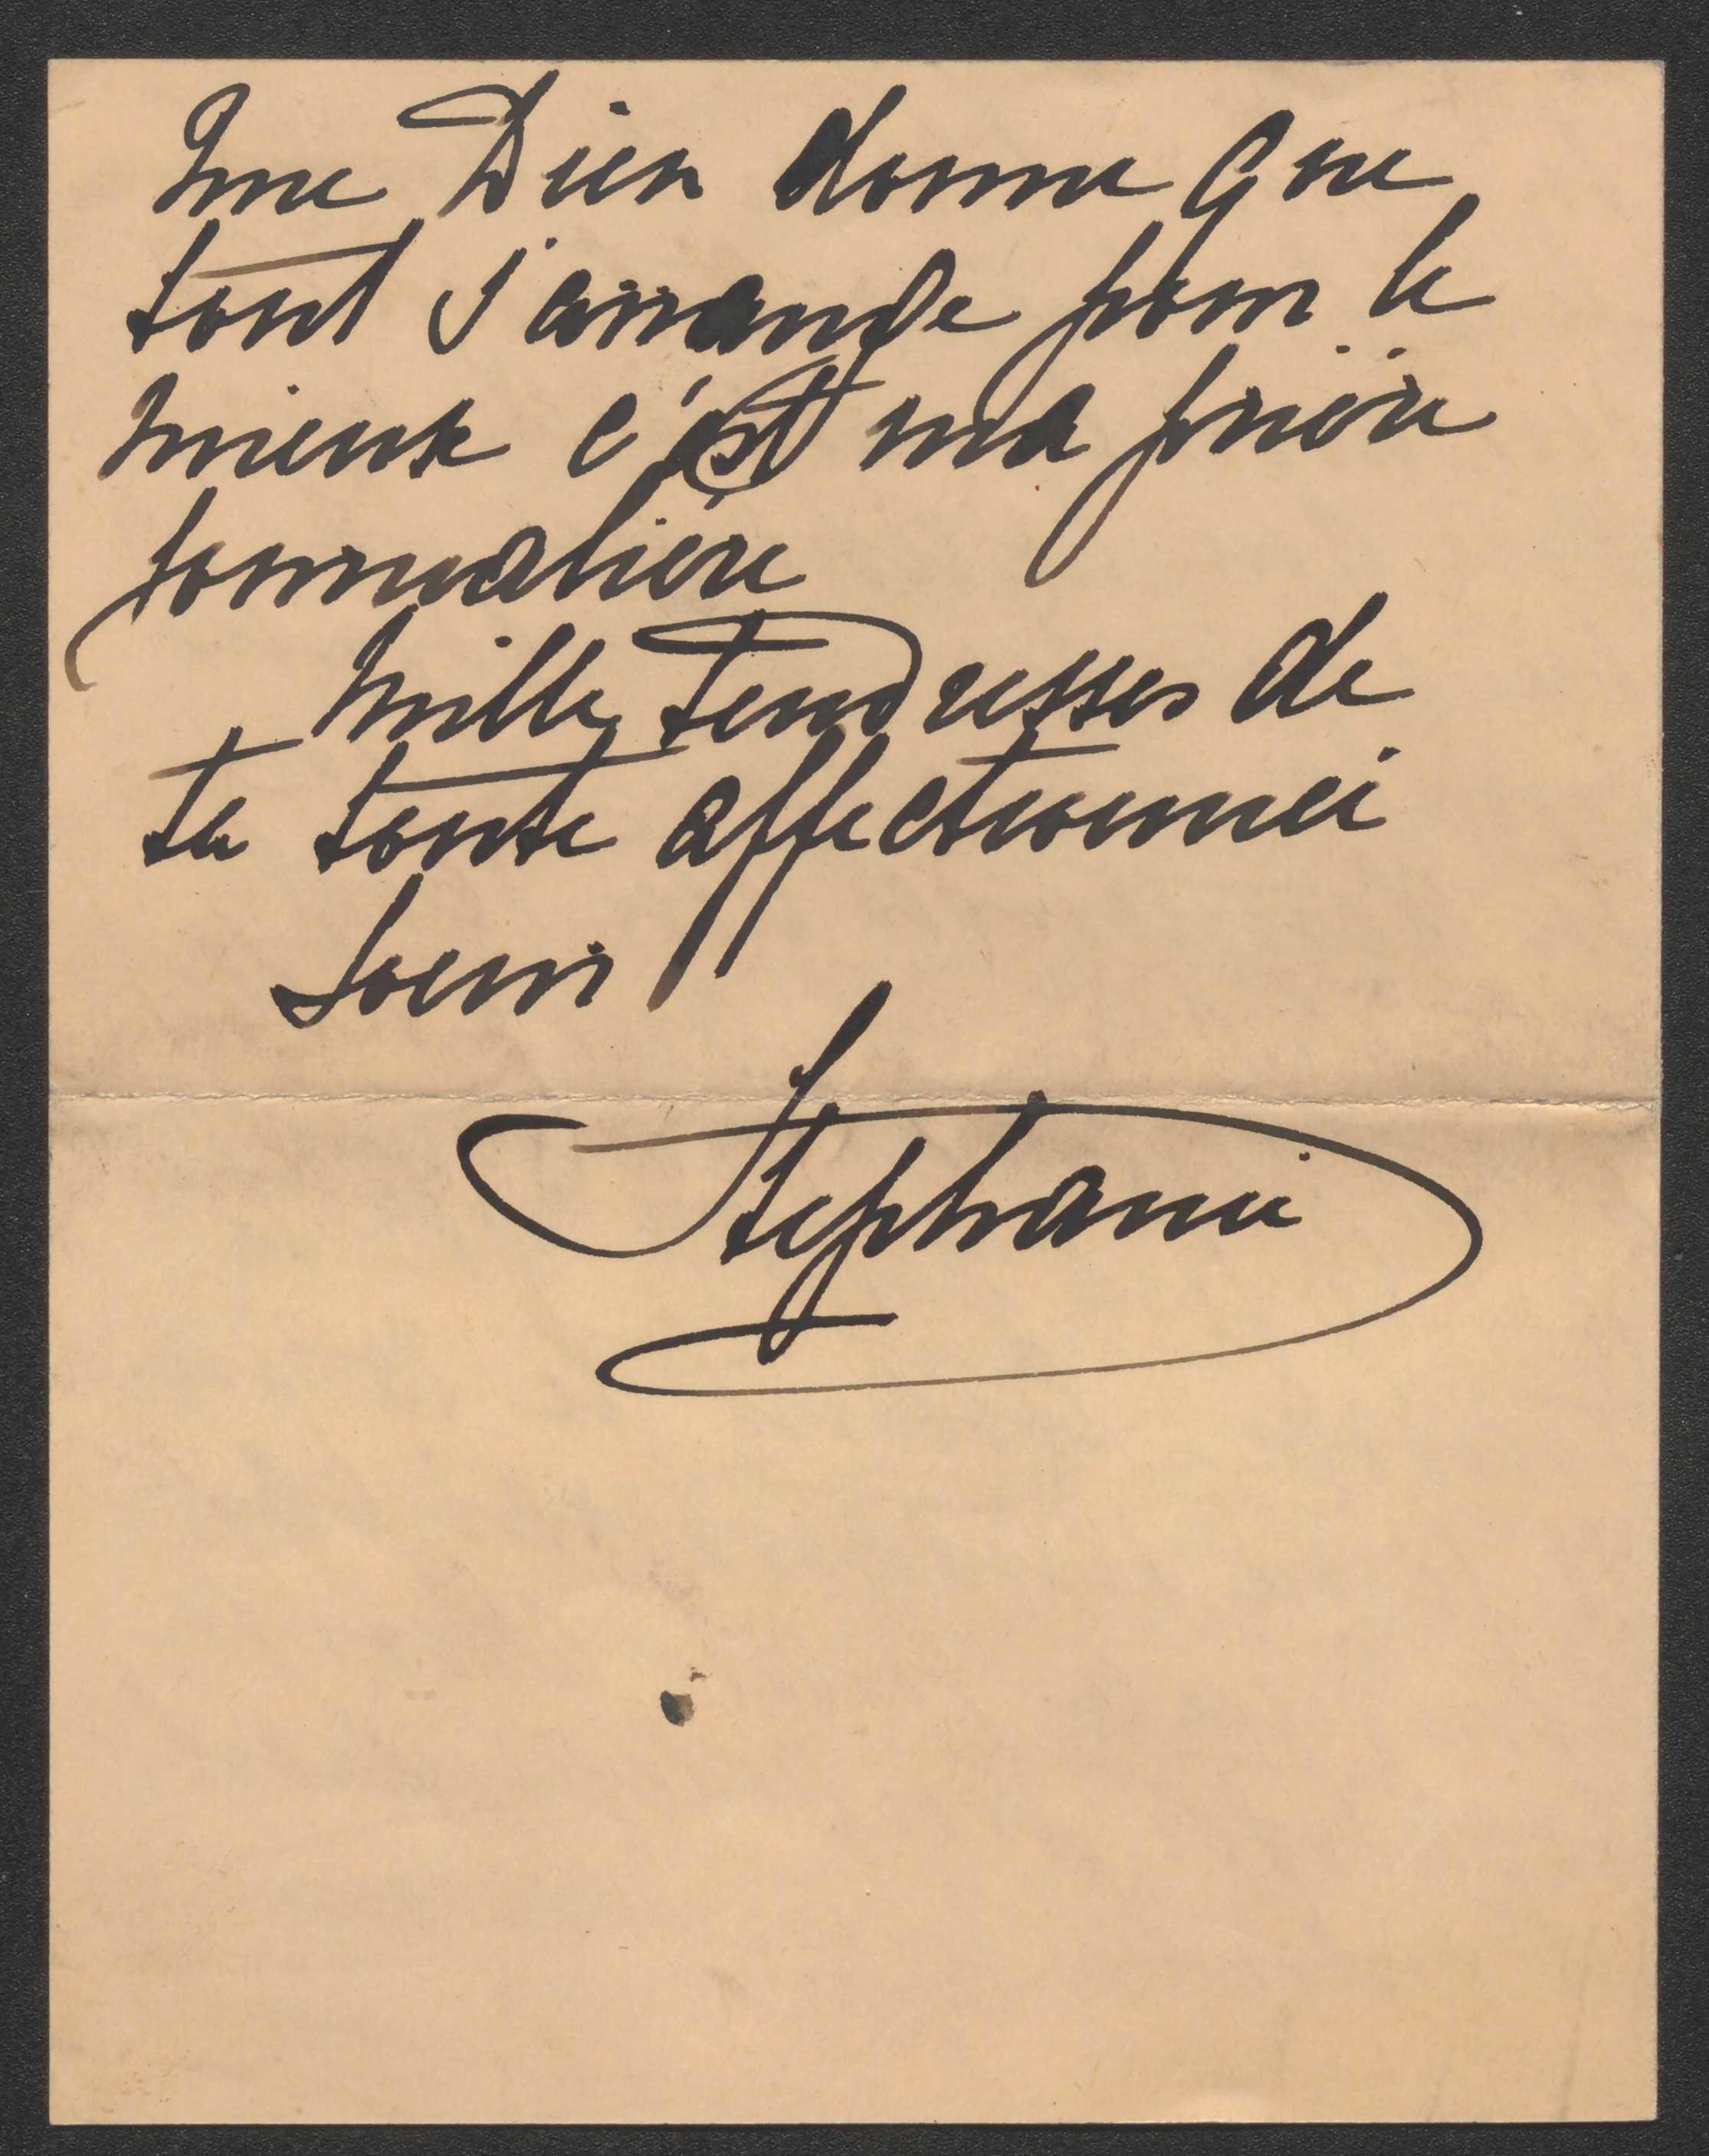 Que Dieu donne que
tout s'arrange pour le
mieux c'est ma prière
journalière
Mille tendresses de
ta toute affectionnée
Soeur
Stephanie